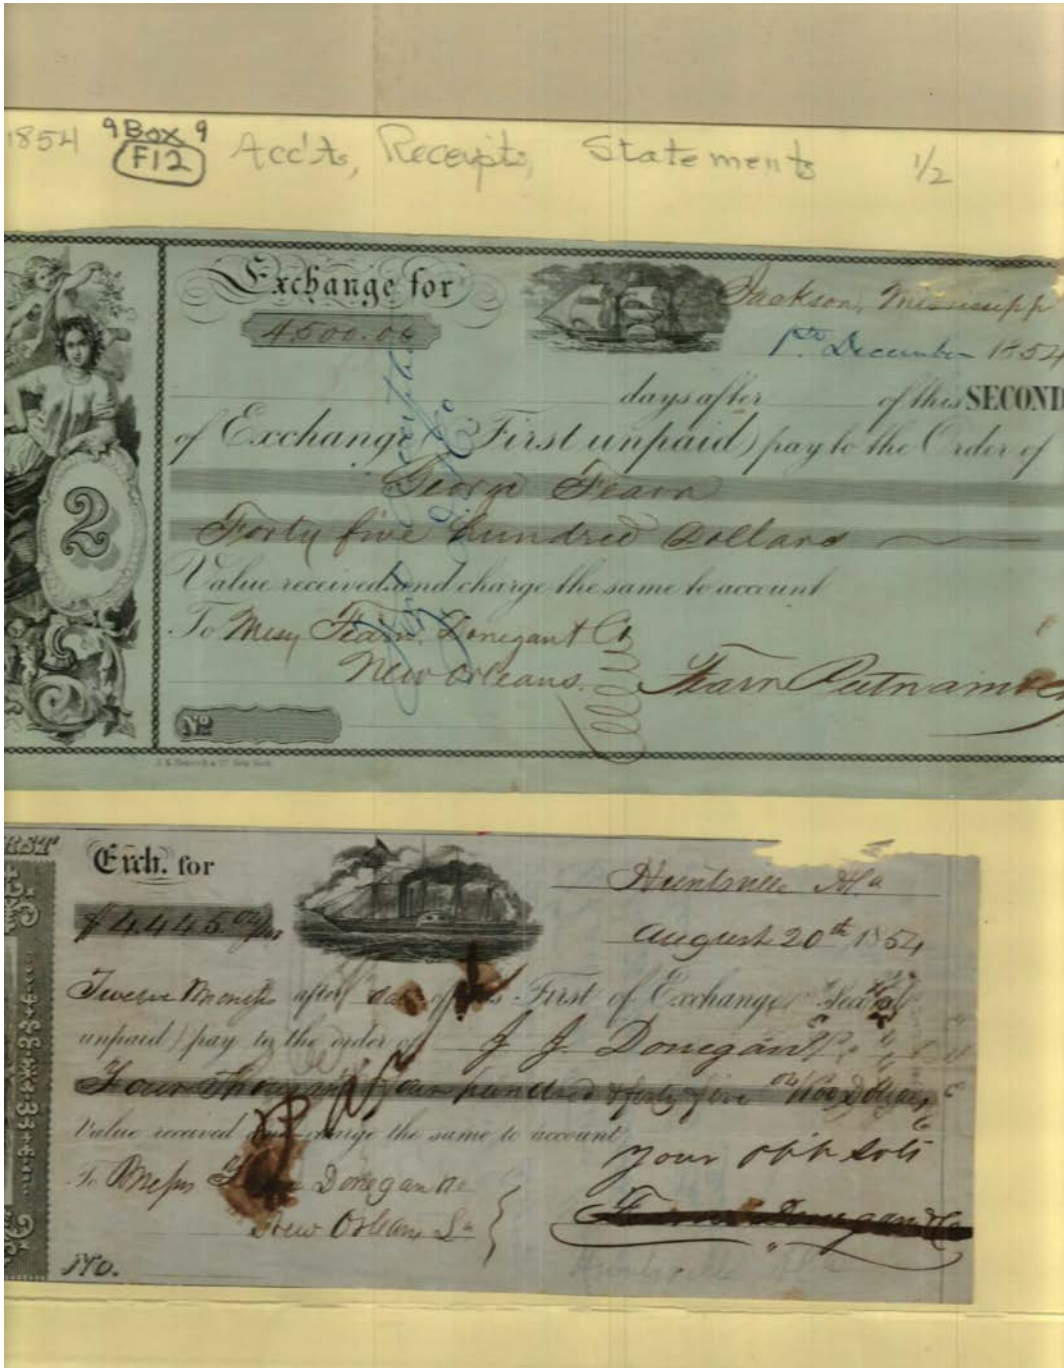 1854 9 Box 9 Acc'ts, Receipts, Statements 1/2
F12
Exchange for
Jackson, Mississipp
4500.00
1st December 1854
days after of this SECOND
of Exchange (First unpaid) pay to the Order of
George Fearn
Forty five hundred Dollars
2
Value received and charge the same to account
To Messrs Fearn, Donegan & Co
New Orleans.
Fearn Putnam & C
No
RST
Exch. for
Huntsville Ala
$4,445.04/100
August 20th 1854
Twelve Months after date of this First of Exchange (Second
unpaid) pay to the order of J J Donegan
Four Thousand Four hundred & forty five 04/100 Dollars
Value received and charge the same to account
your obt Svts
To Messrs Donegan &Co
New Orleans La
Fearn Donegan & Co
Huntsville Ala
NO.